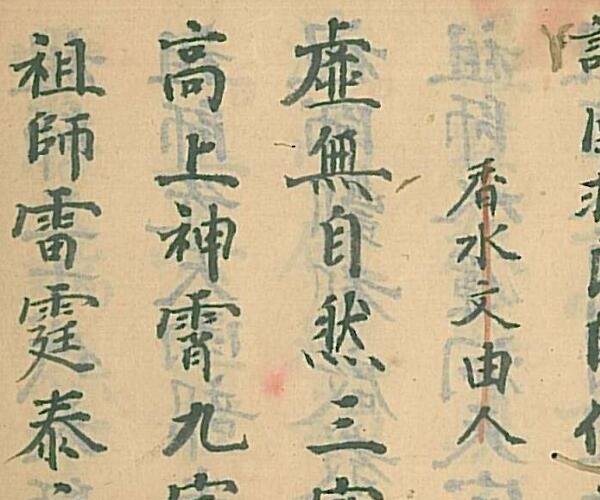 香水文由人
虛無自然三
高上神霄九
祖師雷霆泰